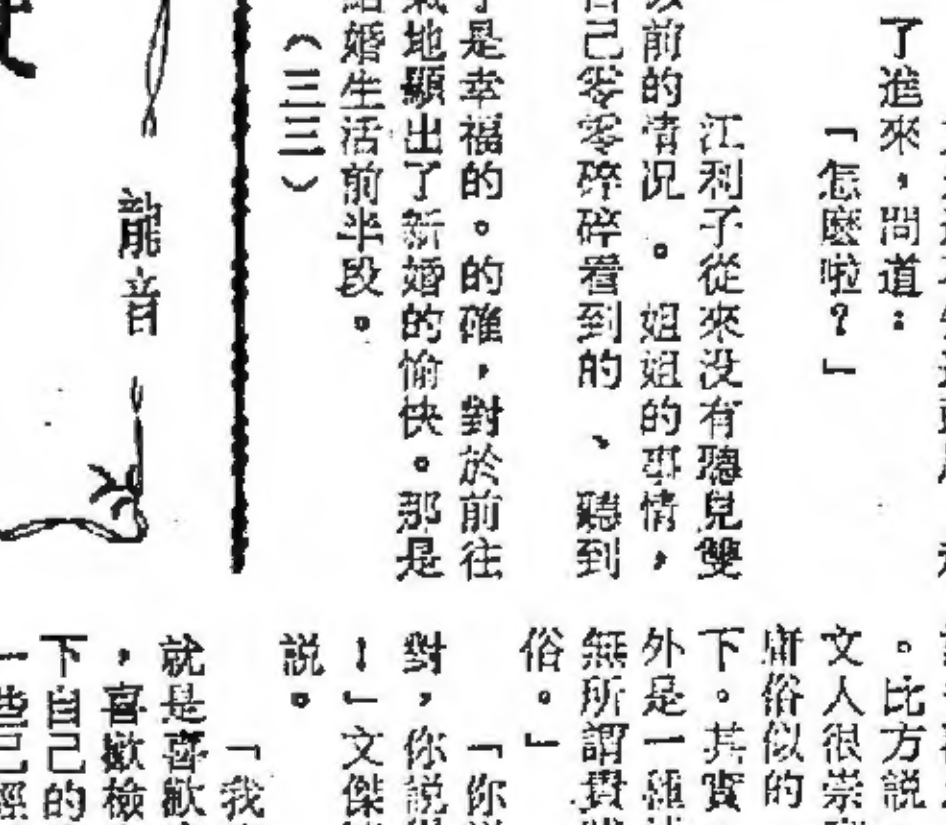 了進來，問道：
「怎麼啦？」
江利子從來没有聽見雙
前的情况。姐姐的事情，
己零零碎碎看到的、聽到
是幸福的。的確，對於前往
地顯出了新婚的愉快。那是
婚生活前半段。
（三三）
龍音
。比方説
文人很崇
庸俗似的
下。其實
外是一種
無所謂貴
俗。」
「你
對，你説
！」文傑
説。
「我
就是喜歡
，喜歡檢
下自己的
一些已經